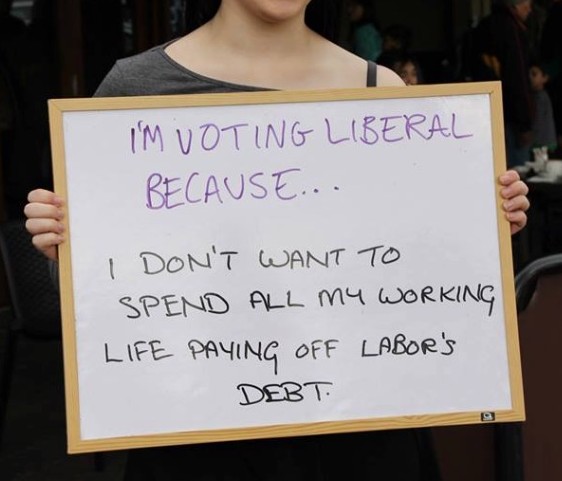 I'M VOTING LIBERAL
BECAUSE...
I DON'T WANT TO
SPEND ALL MY WORKING
LIFE PAYING OFF LABOR'S
DEBT.